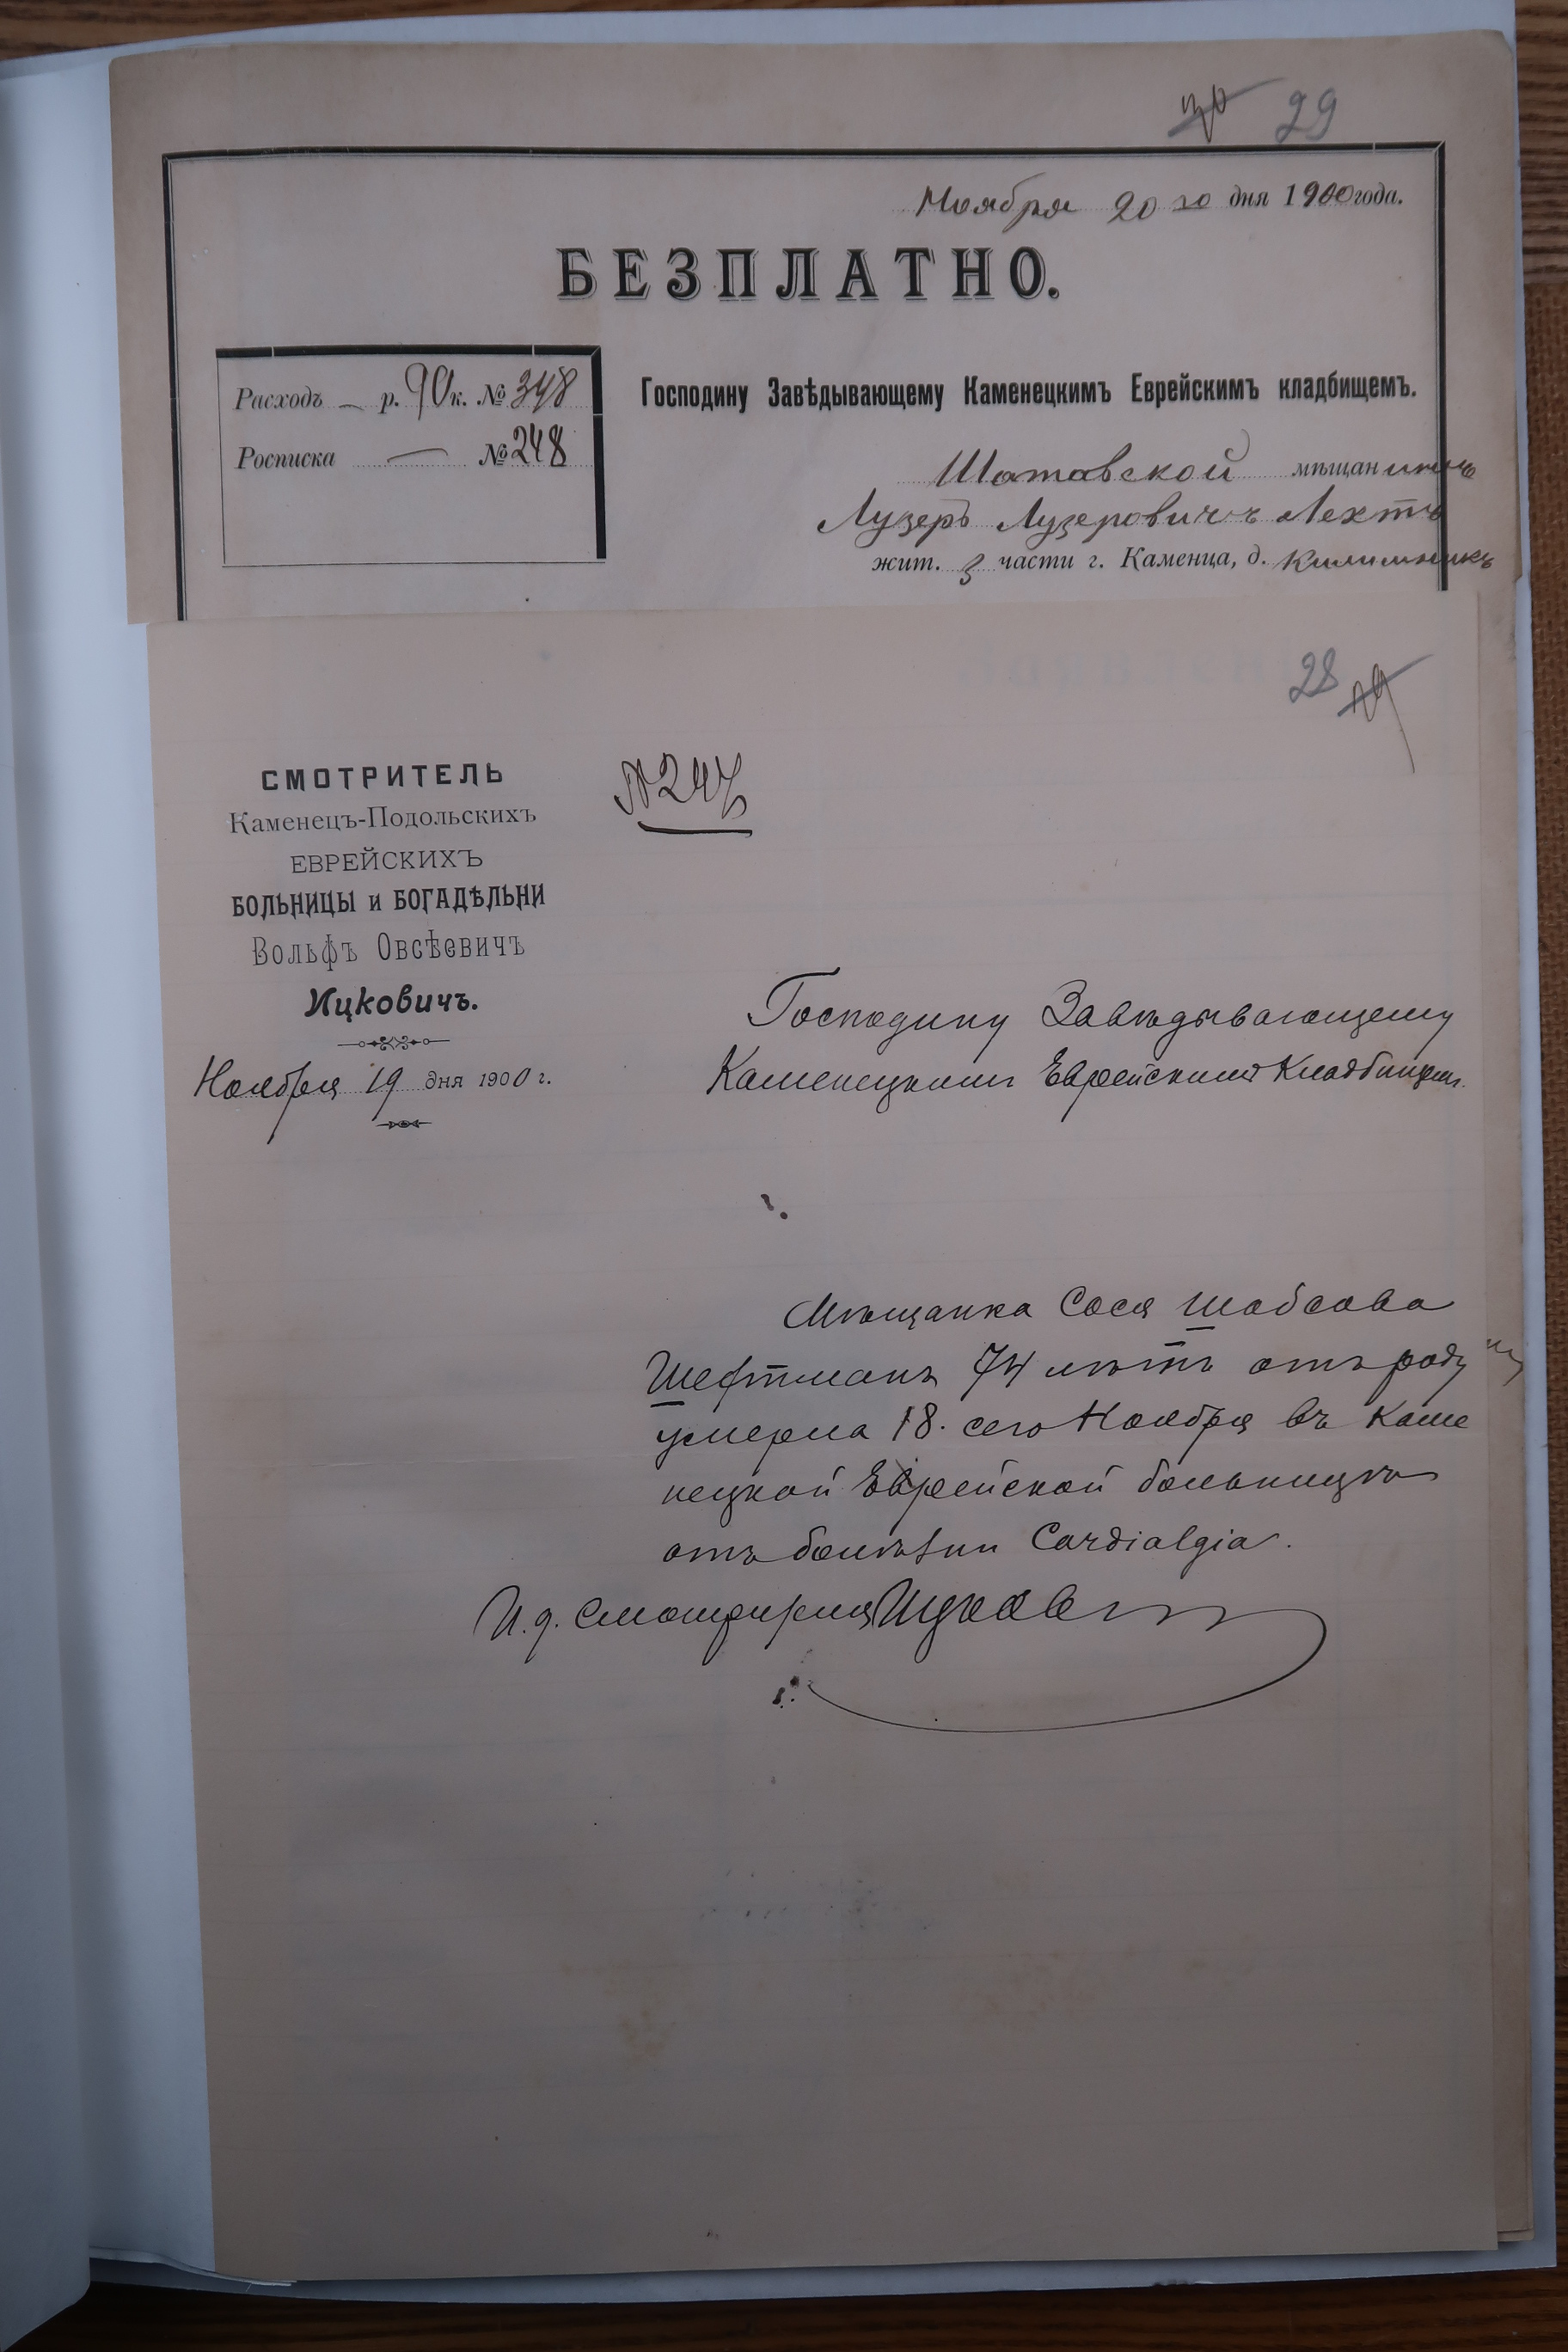 29
Ноября 20 го дня 1900 года.
БЕЗПЛАТНО.
Расходъ — р. 90 к. № 348
Росписка — № 248
Господину Завѣдывающему Каменецкимъ Еврейскимъ кладбищемъ.
Шатавской мѣщанинъ
Лузеръ Лузеровичъ Лехтъ
жит. 3 части г. Каменца, д. Килимникъ
28
№ 247
СМОТРИТЕЛЬ
Каменецъ-Подольскихъ
ЕВРЕЙСКИХЪ
БОЛЬНИЦЫ и БОГАДѢЛЬНИ
Вольфъ Овсѣевичъ
Ицковичъ.
Ноября 19 дня 1900 г.
Господину Завѣдывающему
Каменецкимъ Еврейскимъ Кладбищемъ.
Мѣщанка Сося Шабсова
Шефтманъ 74 лѣтъ отъ роду
умерла 18. сего Ноября въ Каме
нецкой Еврейской больницѣ
отъ болѣзни Cardialgia.
И. д. Смотрителя Ицкович